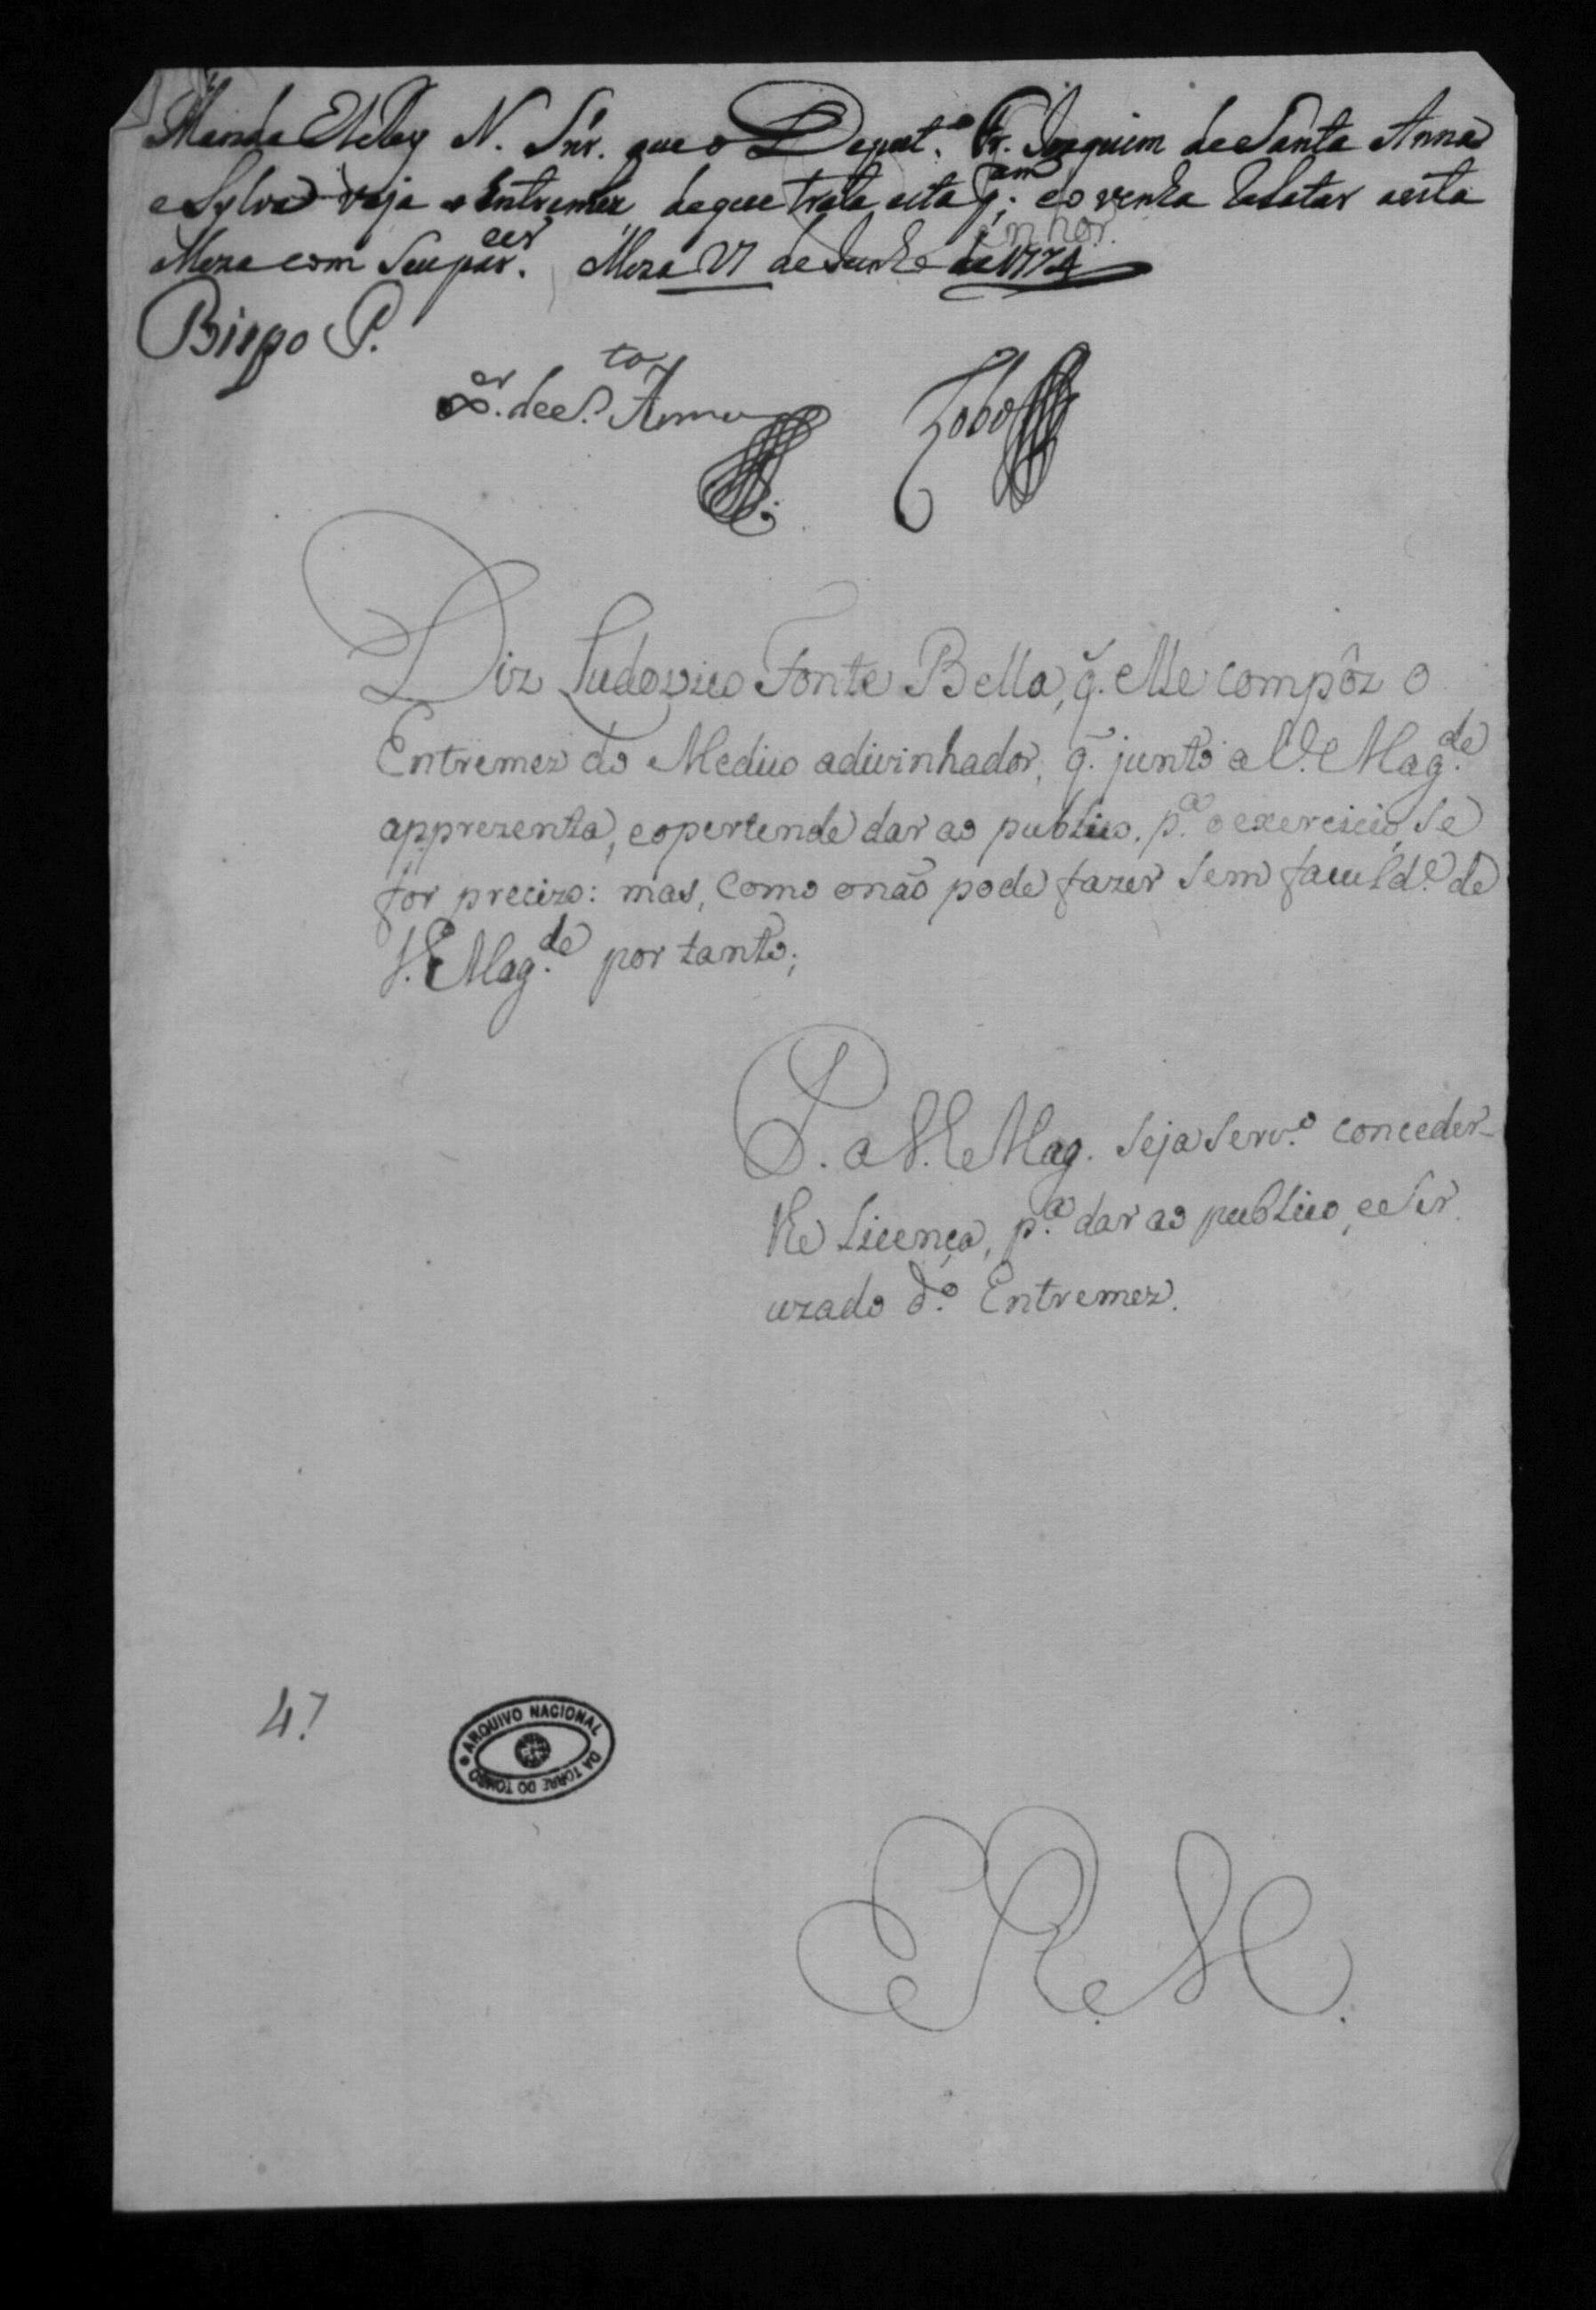 Manda ElRey N. Snr. que o Deput.º Fr. Joaquim de Santa Anna
e Sylva veja o Entremez de que trata esta p.am e o venha relatar nesta
Meza com seu par.cer Meza de Junho de 1774
Bispo P.
X.er de S.ta Anna Lobo
Senhor.
Diz Ludovico Fonte Bella, q̃. elle compôz o
Entremez do Medico adivinhador, q̃. junto a V. Mag.de
apprezenta, e o pertende dar ao publico. p.a o exercicio, se
for precizo: mas, como o não pode fazer sem faculd.e de
V. Mag.de por tanto;
P. a V. Mag. seja serv.º conceder-
lhe licença, p.a dar ao publico, e ser
uzado d.º Entremez.
47
ARQUIVO NACIONAL DA TORRE DO TOMBO
E R M.